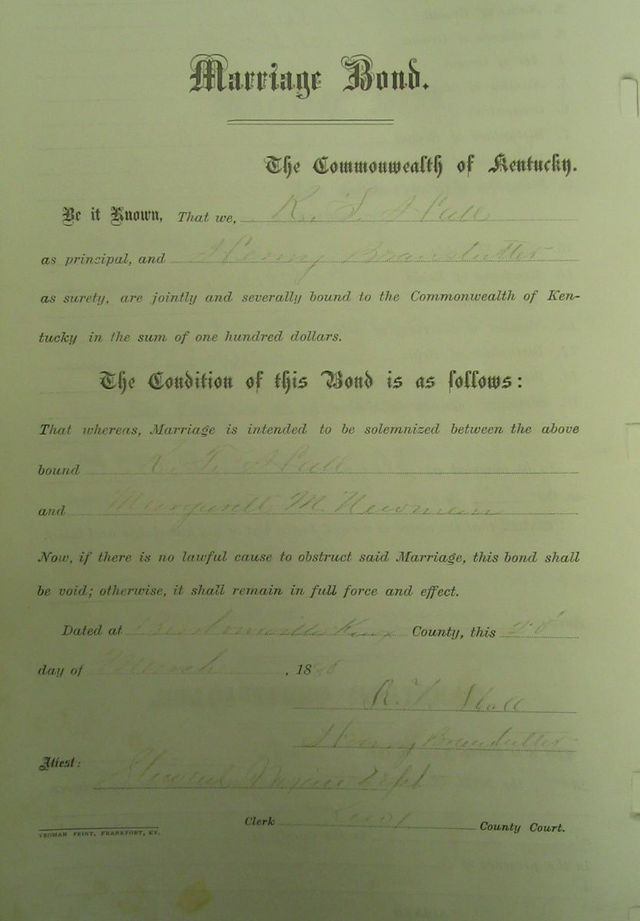 Marriage Bond.
The Commonwealth of Kentucky.
Be it Known, That we, Hall
as principal, and Henry
as surety, are jointly and severally bound to the Commonwealth of Ken-
tucky in the sum of one hundred dollars.
The Condition of this Bond is as follows:
That whereas, Marriage is intended to be solemnized between the above
bound Hall
and M. Newman
Now, if there is no lawful cause to obstruct said Marriage, this bond shall
be void; otherwise, it shall remain in full force and effect.
Dated at Knox County, this
day of March, 18
Hall
Henry
Attest:
Clerk Knox County Court.
YEOMAN PRINT, FRANKFORT, KY.